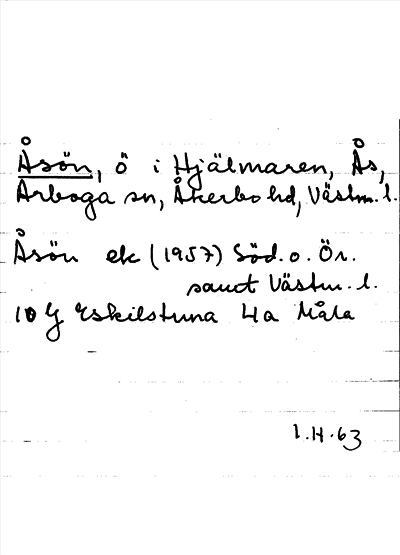 Åsön, ö i Hjälmaren, Ås,
Arboga sn, Åkerbo hd, Västm. l.
Åsön ek (1957) Söd. o. Ör.
samt Västm. l.
10 G Eskilstuna 4a Måla
I.H. 63